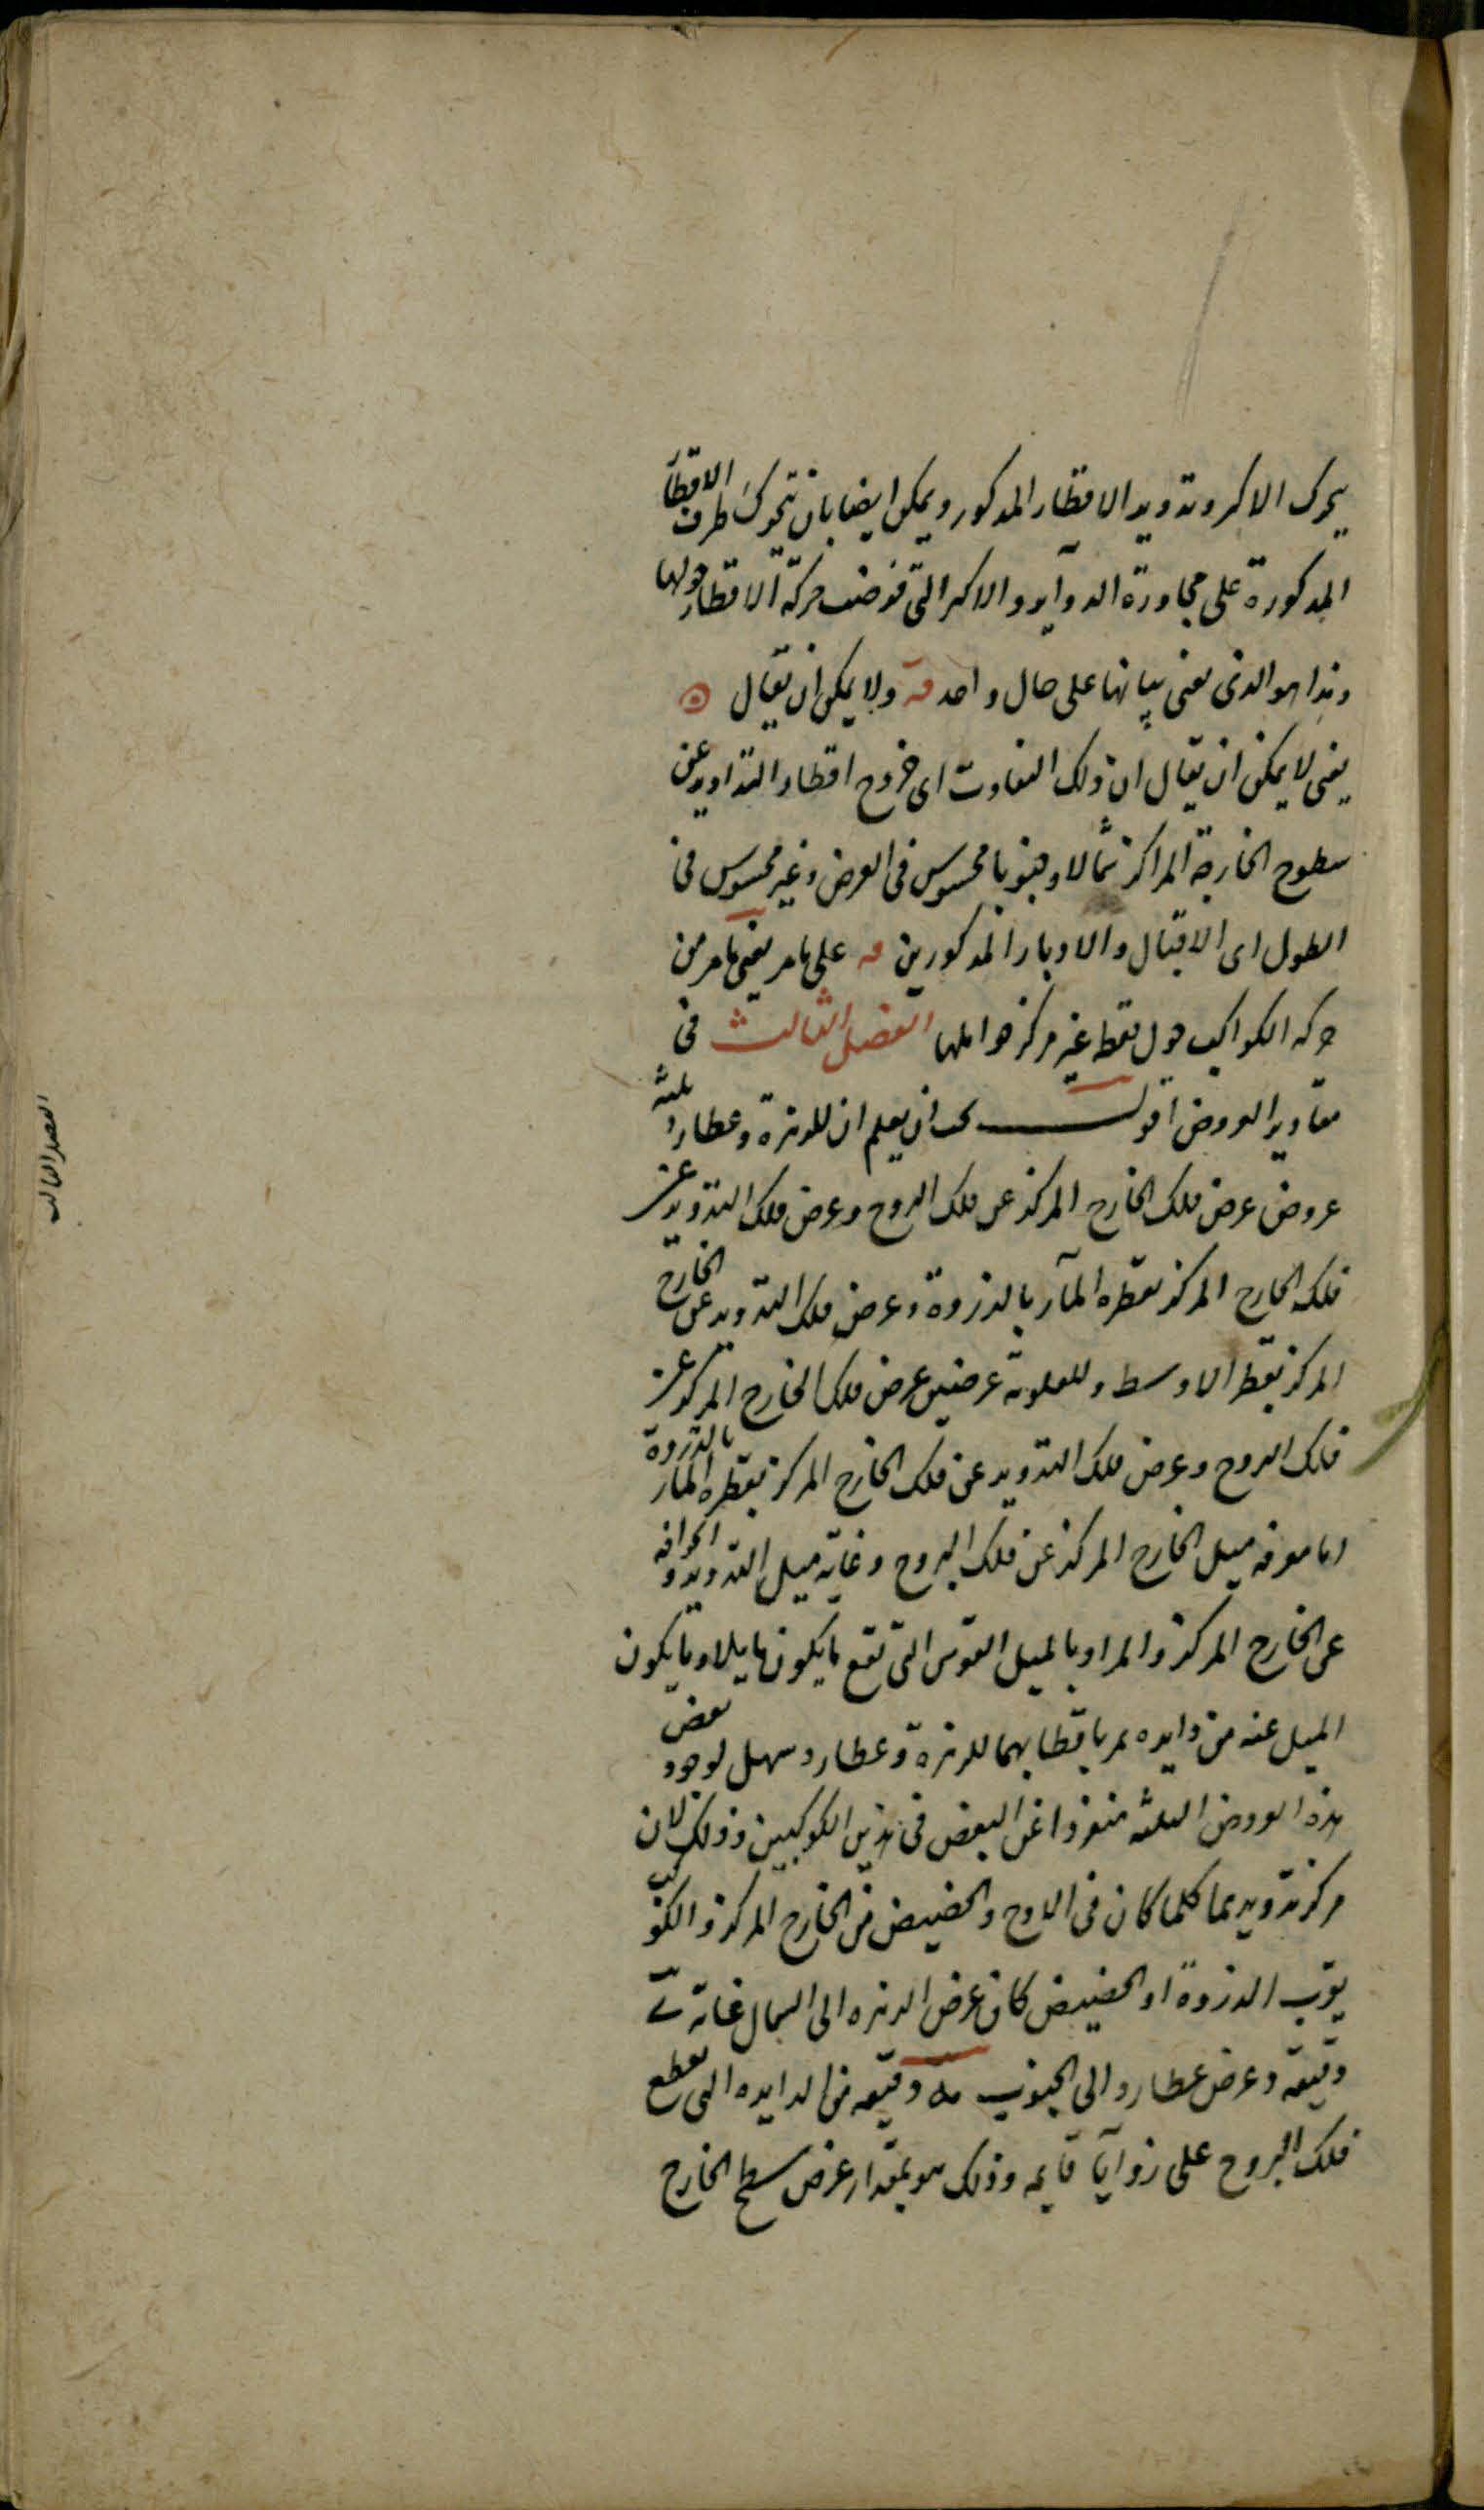 يحرك الاكر وتدوير الاقطار المذكور ويمكن ايضا بان تتحرك طرف الاقطار
المذكورة على مجاورة الدوآير والاكر التى فرضت حركة الاقطار حولها
وهذا هو الذى يعنى ببيانها على حال واحد قه ولا يمكن ان يقال
يعنى لا يمكن ان يقال ان ذلك التفاوت اى خروج اقطار التداوير عن
سطوح الخارجة المراكز شمالا وجنوبا محسوس فى العرض وغير محسوس فى
الطول اى الاقبال والادبار المذكورين قه على ما مر يعنى ما مر من
حركة الكواكب حول نقط غير مركز حواملها الفصل الثالث فى
مقادير العروض اقول يجب ان يعلم ان للزهرة وعطارد ثلثة
عروض عرض فلك الخارج المركز عن فلك البروج وعرض فلك التدوير عن
فلك الخارج المركز بقطره المآر بالذروة وعرض فلك التدوير عن الخارج
المركز بقطر الاوسط وللعلوية عرضين عرض فلك الخارج المركز عن
فلك البروج وعرض فلك التدوير عن فلك الخارج المركز بقطره المار بالذروة
اما معرفة ميل الخارج المركز عن فلك البروج وغاية ميل التدوير وانحرافه
عن الخارج المركز والمراد بالميل القوس التى تقع ما يكون مايلا وما يكون
الميل عنه من دايره تمر باقطابهما للزهرة وعطارد سهل لوجود بعض
هذه العروض الثلثة منفردا عن البعض فى هذين الكوكبين وذلك لان
مركز تدويريهما كلما كان فى الاوج والحضيض من الخارج المركز والكوكب
بقرب الذروة او الحضيض كان عرض الزهره الى الشمال غاية ى
دقيقة وعرض عطارد الى الجنوب مه دقيقه من الدايره التى تقطع
فلك البروج على زوآيا قايمه وذلك هو بمقدار عرض سطح الخارج
الفصل الثالث